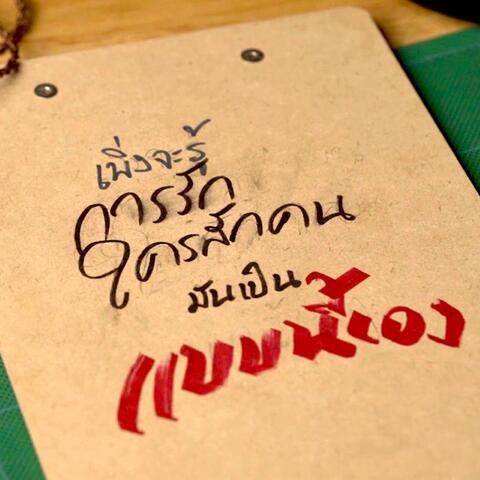 เพิ่งจะรู้
การรัก
ใครสักคน
มันเป็น
แบบนี้เอง